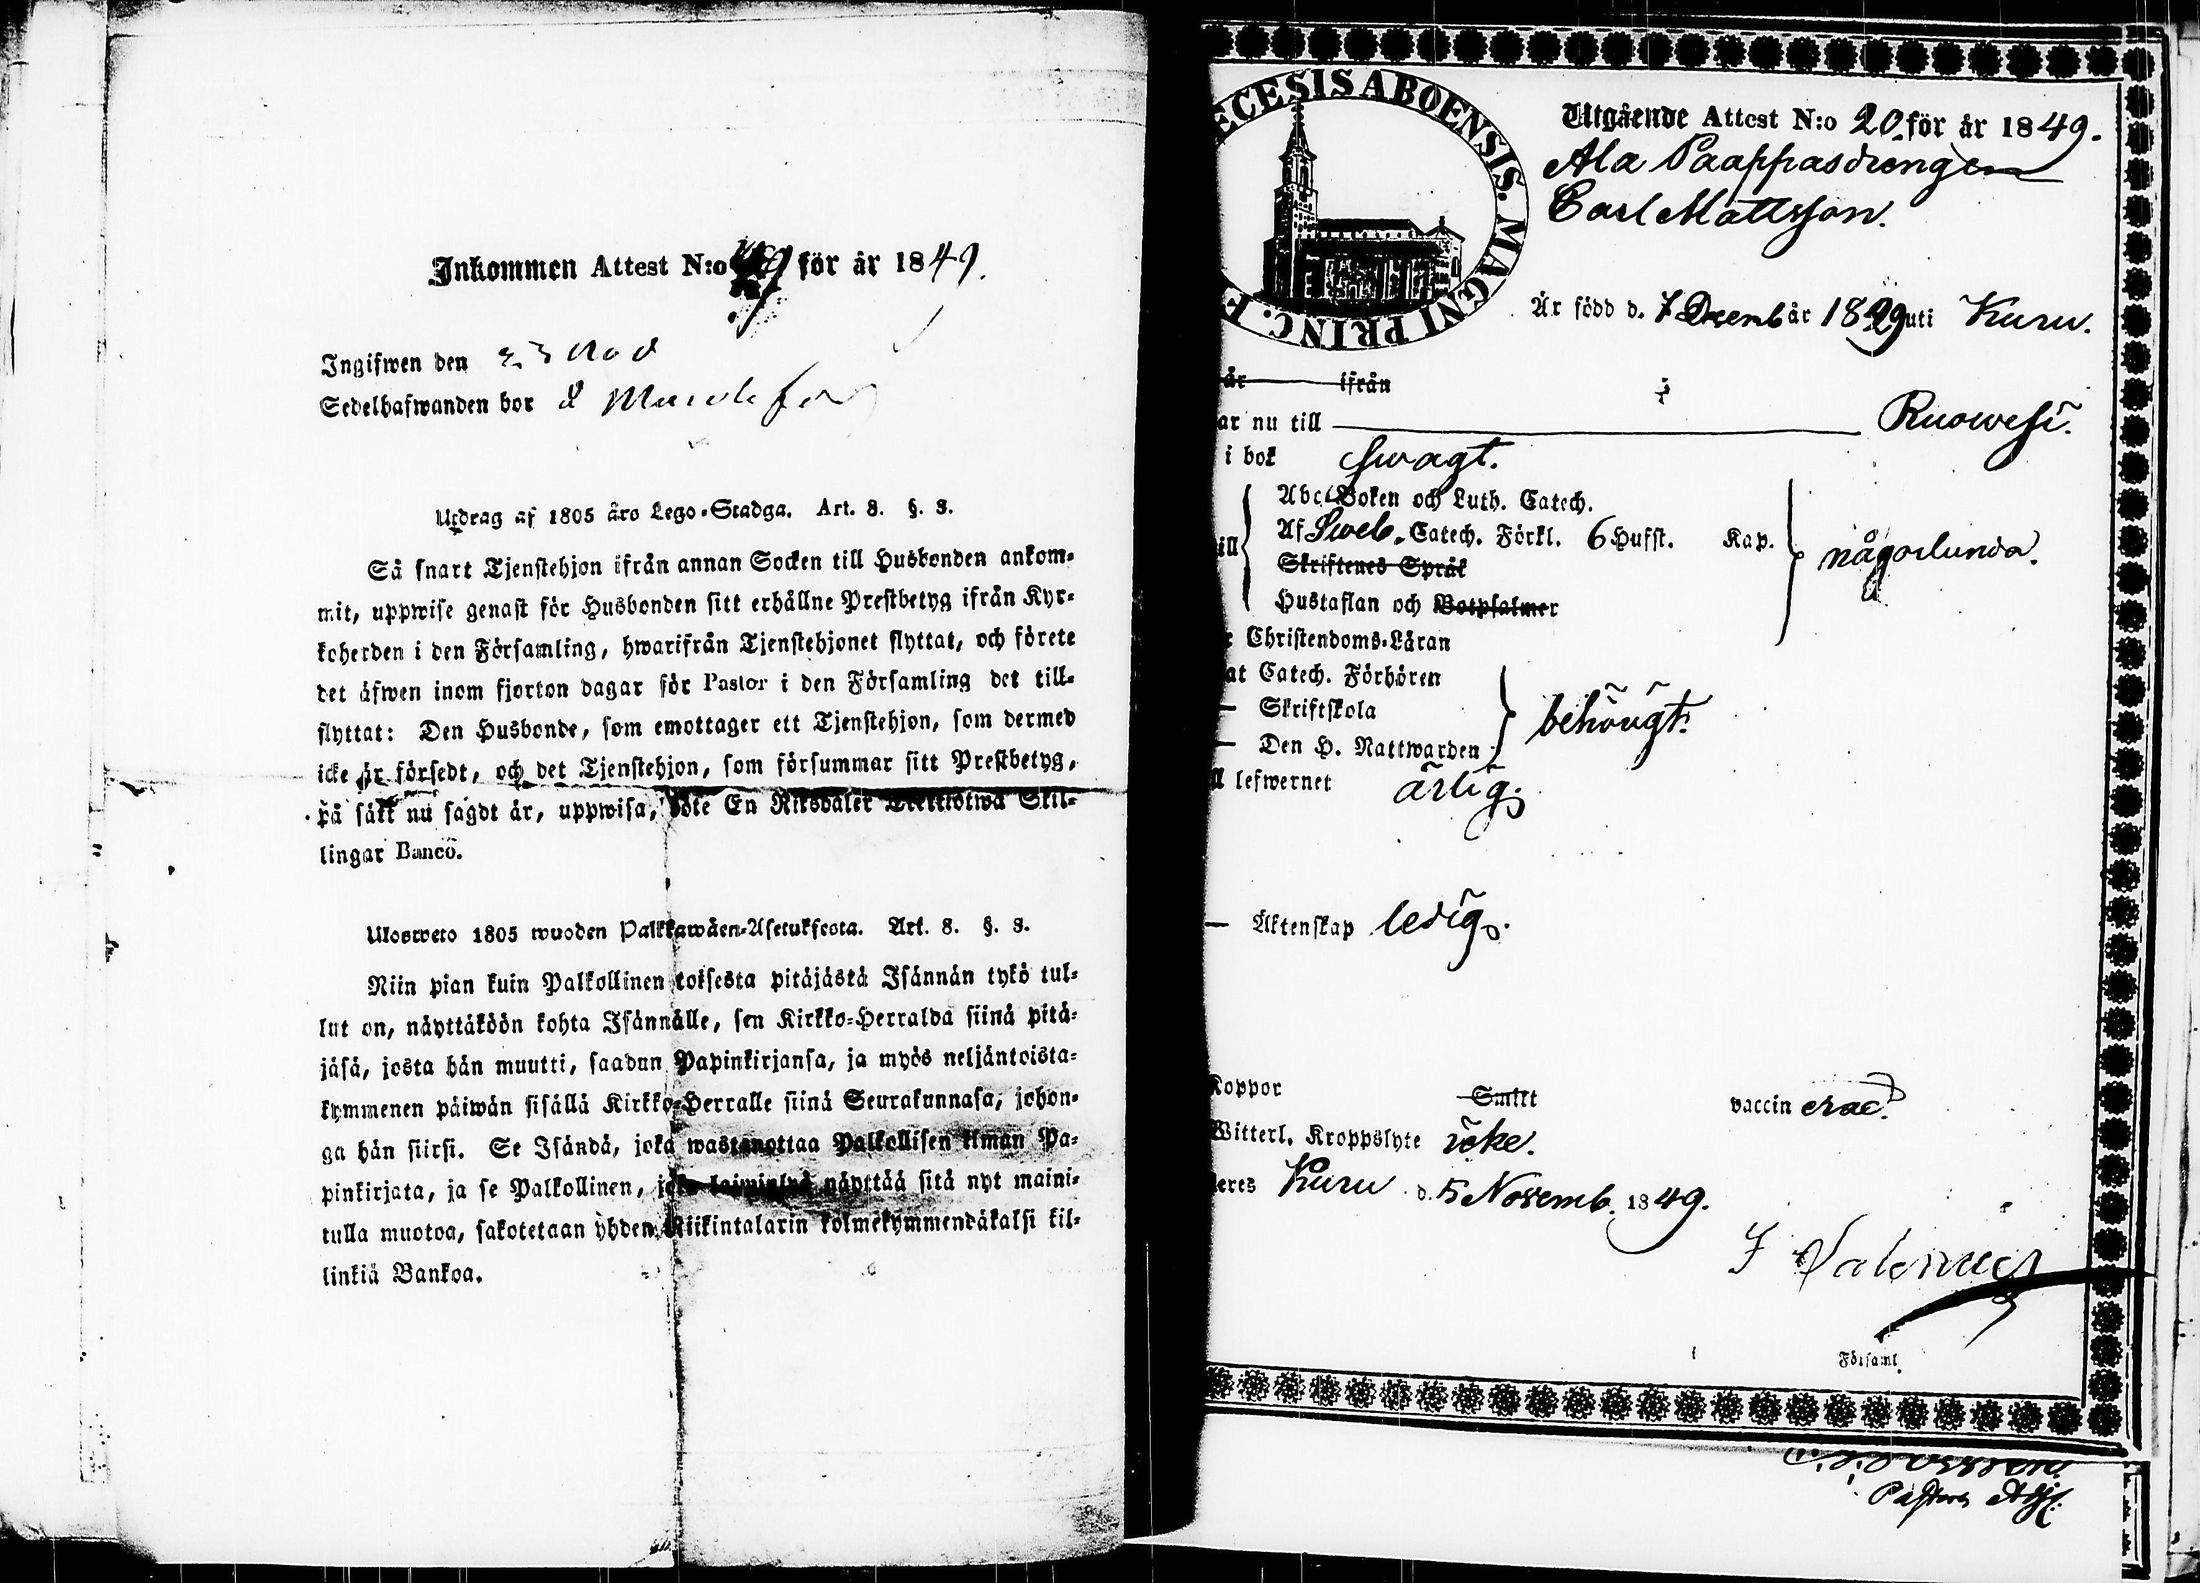 Inkommen Attest N:o för år 1849.
Ingifwen den 23 Nov
Sedelhafwanden bor
Utdrag af 1805 års Lego-Stadga. Art. 8. §. 3.
Så snart Tjenstehjon ifrån annan Socken till Husbonden ankom-
mit, uppwise genast för Husbonden sitt erhållne Prestbetyg ifrån Kyr-
koherden i den Församling, hwarifrån Tjenstehjonet flyttat, och förete
det äfwen inom fjorton dagar för Pastor i den Församling det till-
flyttat: Den Husbonde, som emottager ett Tjenstehjon, som dermed
icke är försedt, och det Tjenstehjon, som försummar sitt Prestbetyg,
på sätt nu sagdt är, uppwisa, böte En Riksdaler Trettiotwå Skil-
lingar Banco.
Ulosweto 1805 wuoden Palkkawäen-Asetuksesta. Art. 8. §. 3.
Niin pian kuin Palkollinen toisesta pitäjästä Isännän tykö tul-
lut on, näyttäköön kohta Isännälle, sen Kirkko-Herralda siinä pitä-
jäsä, josta hän muutti, saadun Papinkirjansa, ja myös neljäntoista-
kymmenen päiwän sisällä Kirkko-Herralle siinä Seurakunnasa, johon-
ga hän siirsi. Se Isändä, joka wastanottaa Palkollisen ilman Pa-
pinkirjata, ja se Palkollinen, joka laiminlyö näyttää sitä nyt maini-
tulla muotoa, sakotetaan yhden Riikintalarin kolmekymmendäkaksi kil-
linkiä Bankoa.
ECESIS ABOENSIS. MAGNI PRINC. F
Utgående Attest N:o 20 för år 1849.
Ala Paappasdrengen
Carl Mattsson.
Är född d. 7 Decemb år 1829 uti Kuru.
år ifrån
ar nu till Ruowesi.
i bok swagt.
Abc-Boken och Luth. Catech.
Af Sweb. Catech. Förkl. 6 Hufst. Kap.
ill någorlunda.
Skriftenes Språk
Hustaflan och Botpsalmer
e Christendoms-Läran
at Catech. Förhören
— Skriftskola behörigt.
— Den H. Nattwarden
ll lefwernet ärlig.
— Äktenskap ledig.
Koppor Smitt vaccinerad.
Witterl. Kroppslyte icke.
eres Kuru d. 5 Novemb. 1849.
Församl.
Pastors Adj.